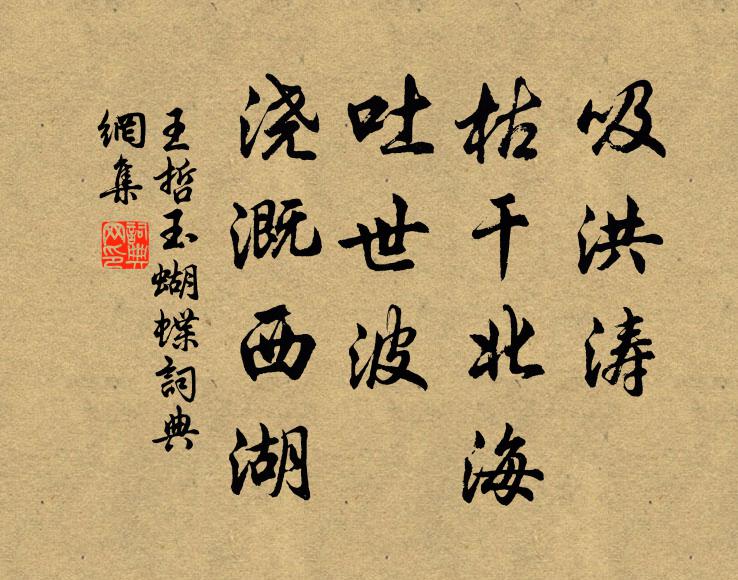 吸洪涛
枯干北海
吐世波
浇溉西湖
王哲玉蝴蝶詞典
網集
詞典
网印